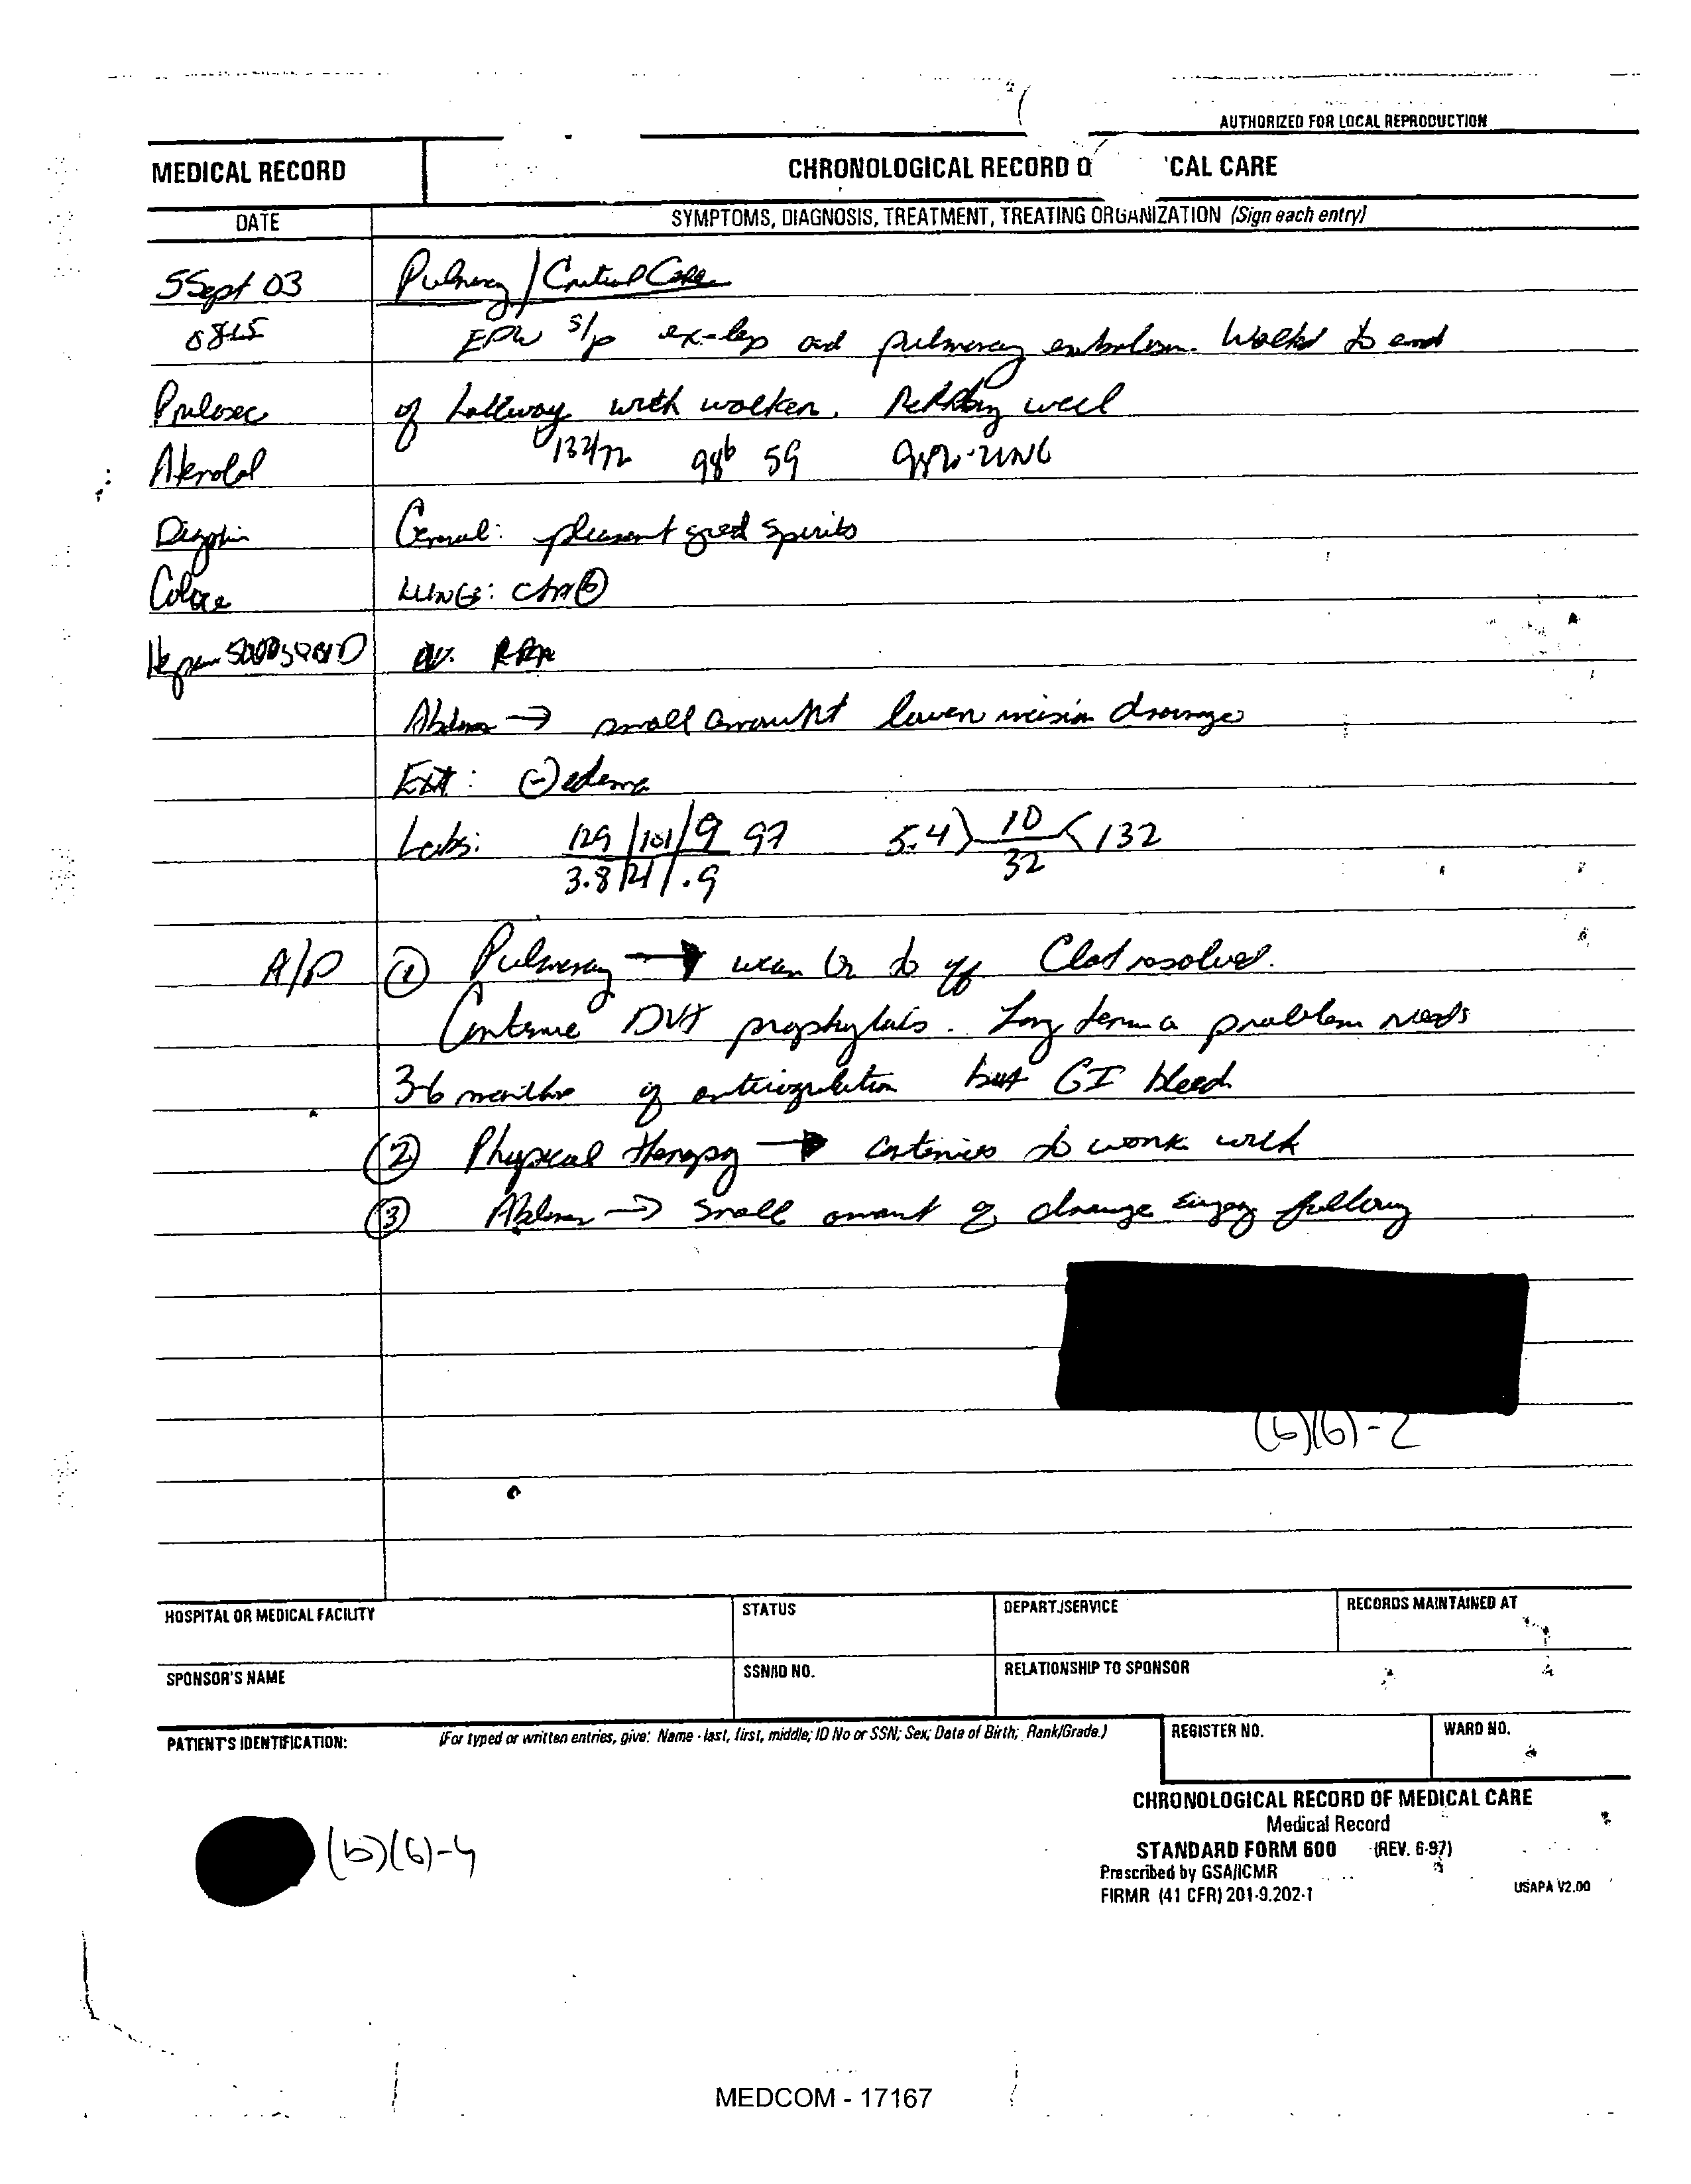 AUTHORIZED FOR LOCAL REPRODUCTION
MEDICAL RECORD
CHRONOLOGICAL RECORD O 'CAL CARE
DATE
SYMPTOMS, DIAGNOSIS, TREATMENT, TREATING ORGANIZATION (Sign each entry)
5 Sept 03 Pulmonary / Critical Care
0815 EPW s/p ex-lap and pulmonary embolism. Walked to end
Prilosec of hallway with walker. well
Atenolol 132/72 986 59
Digoxin General: pleasant good spirits
Colace LUNGS: CTA(B)
Heparin 5000 SQ BID CV: RRR
Abdomen → small amount lower incision drainage
Ext: (-) edema
Labs: 129 / 101 / 9 97 5.4 10 132
3.8 / 21 / .9 32
A/P (1) Pulmonary → wean O2 to off Clot resolved.
Continue DVT prophylaxis. Long term a problem needs
3-6 months of anticoagulation but GI bleed
(2) Physical therapy → continues to work with
(3) Abdomen → small amount of drainage surgery following
(b)(6)-2
HOSPITAL OR MEDICAL FACILITY STATUS DEPART./SERVICE RECORDS MAINTAINED AT
SPONSOR'S NAME SSN/ID NO. RELATIONSHIP TO SPONSOR
PATIENT'S IDENTIFICATION: (For typed or written entries, give: Name - last, first, middle; ID No or SSN; Sex; Date of Birth; Rank/Grade.) REGISTER NO. WARD NO.
CHRONOLOGICAL RECORD OF MEDICAL CARE
Medical Record
STANDARD FORM 600 (REV. 6-97)
Prescribed by GSA/ICMR
FIRMR (41 CFR) 201-9.202-1
USAPA V2.00
(b)(6)-4
MEDCOM - 17167